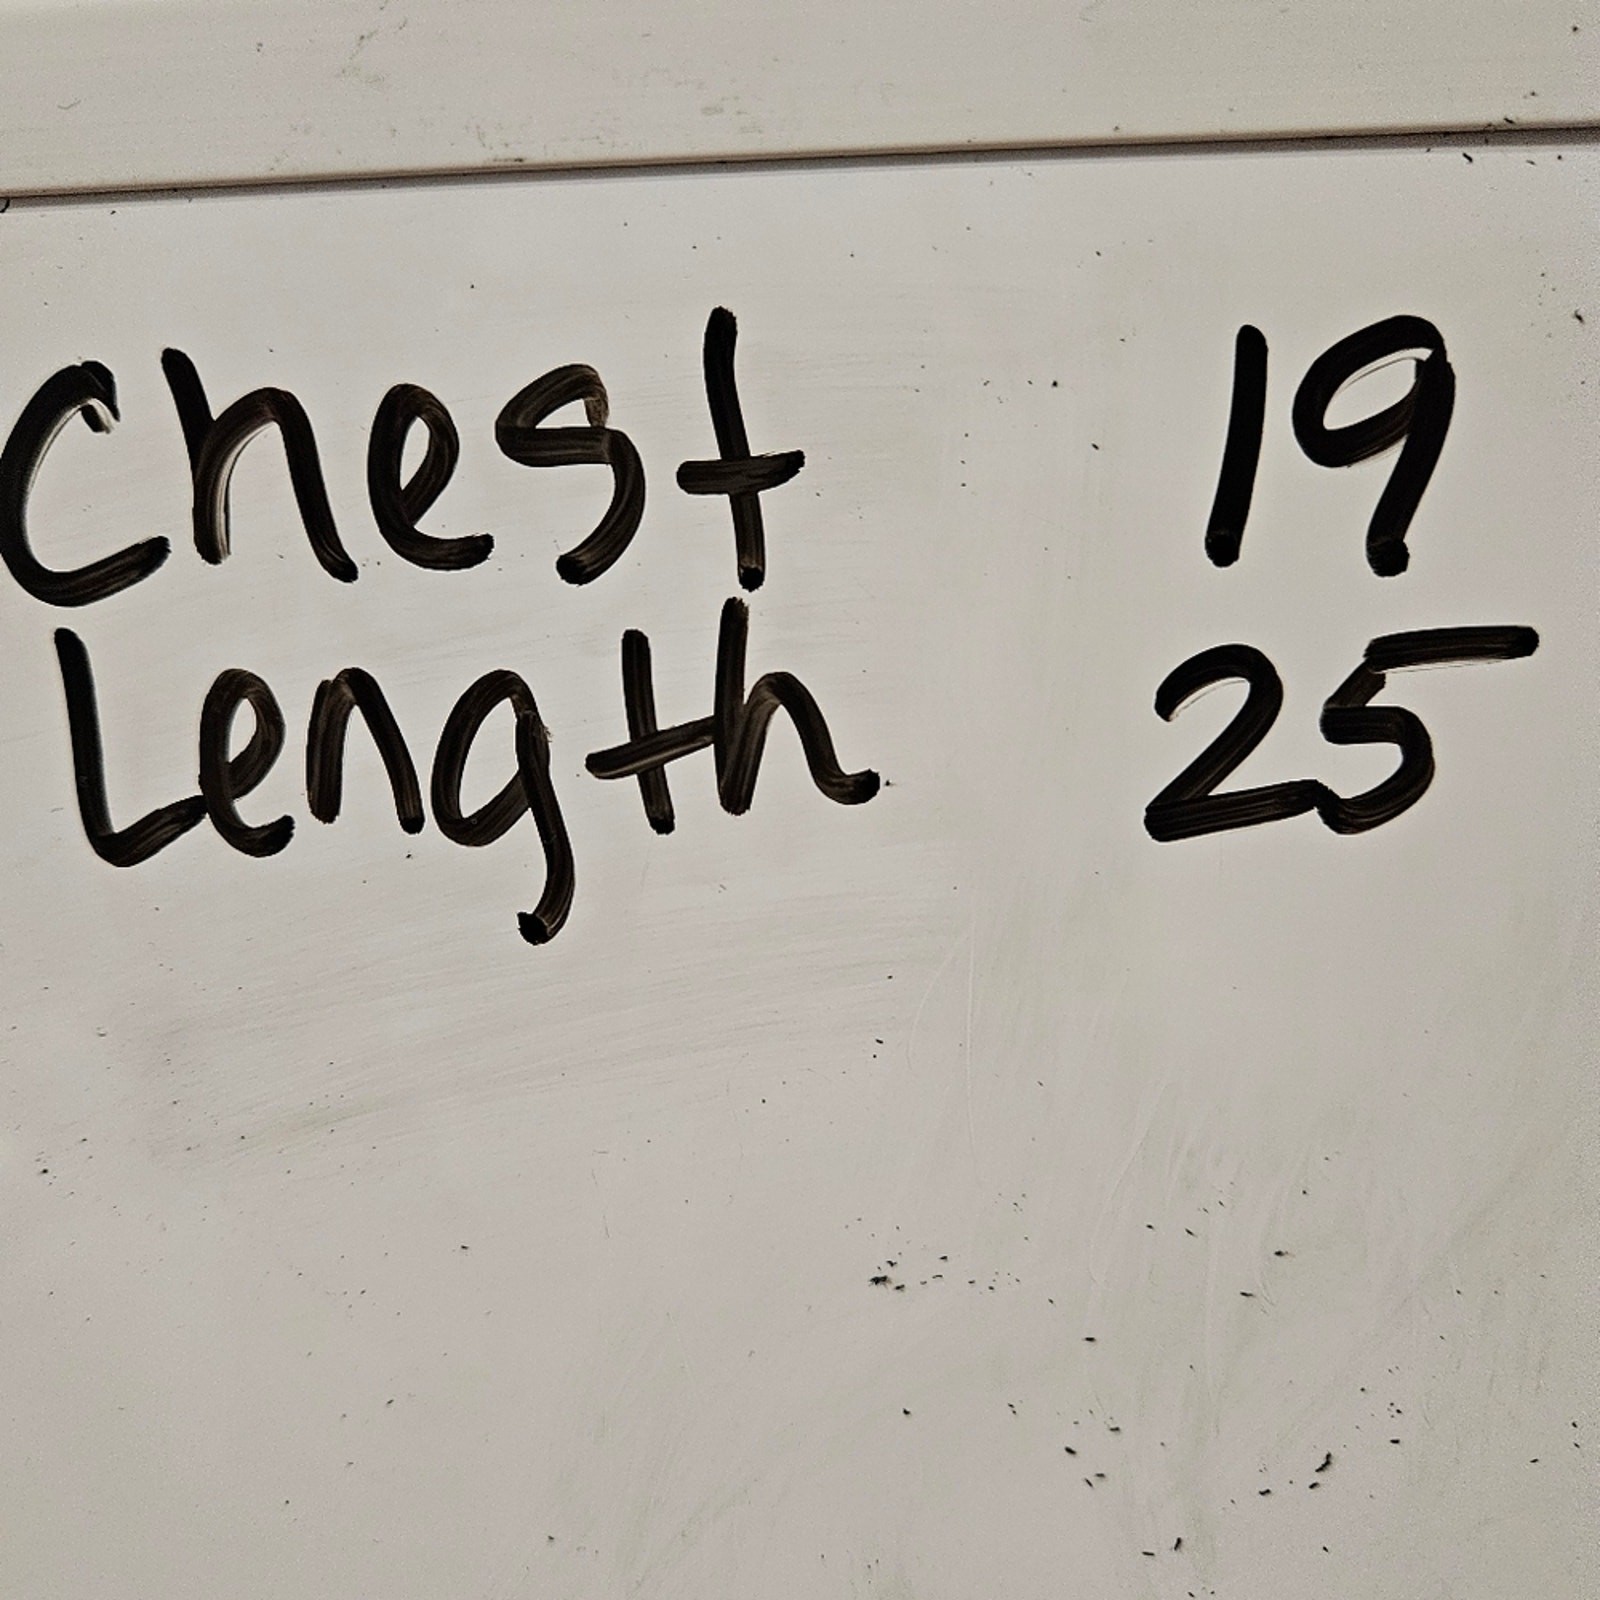 Chest 19
Length 25